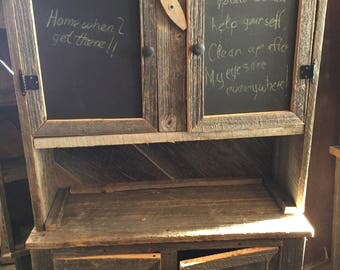 Home when I
get there!!
help yourself
Clean up after
My eyes are
everywhere!